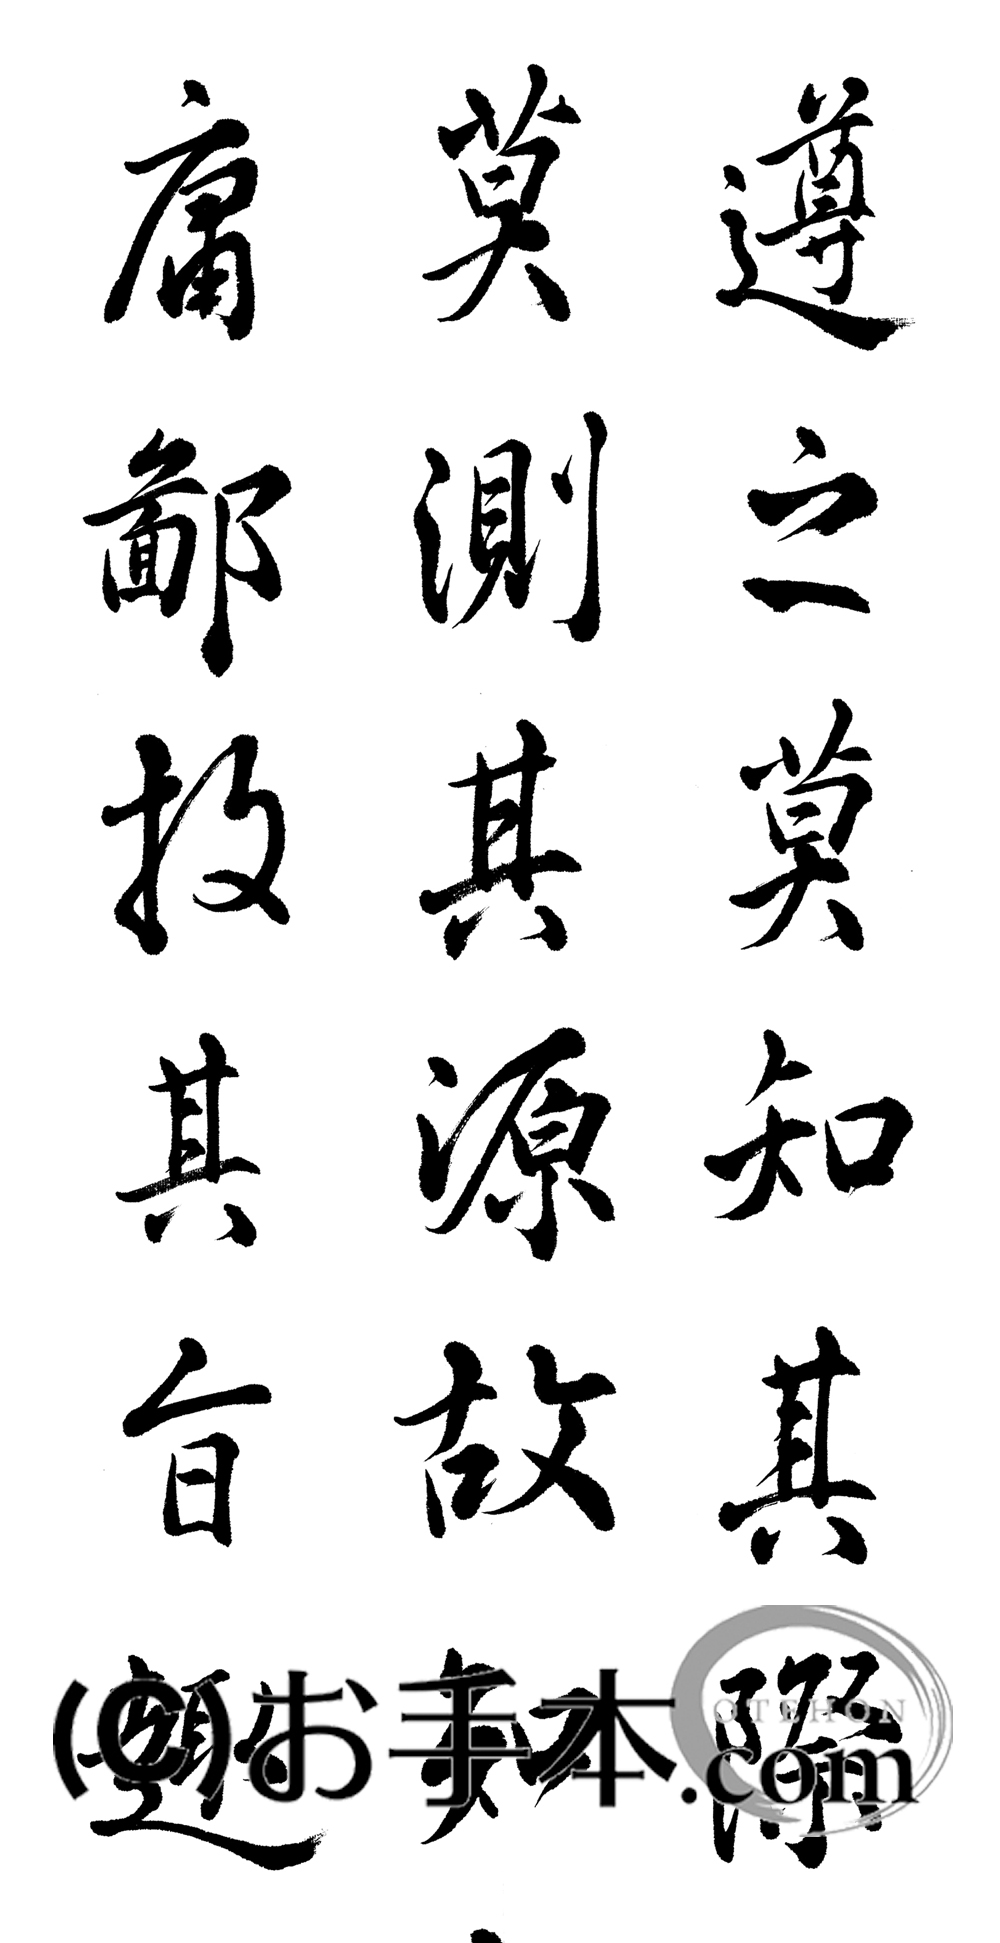 遵之莫知其際
莫測其源故知
庸鄙投其旨趣
(C)お手本.com
OTEHON